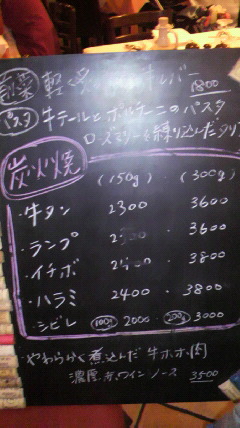 前菜 軽く レバー 1800
パスタ 牛テールとポルチーニのパスタ
ローズマリーを練り込んだタリ
炭火焼 (150g) (300g)
・牛タン 2300 ・ 3600
・ランプ ・ 3600
・イチボ ・ 3800
・ハラミ 2400 ・ 3800
・シビレ 100g 2000 ・ 200g 3000
やわらかく煮込んだ牛ホホ肉
濃厚赤ワインソース 3500